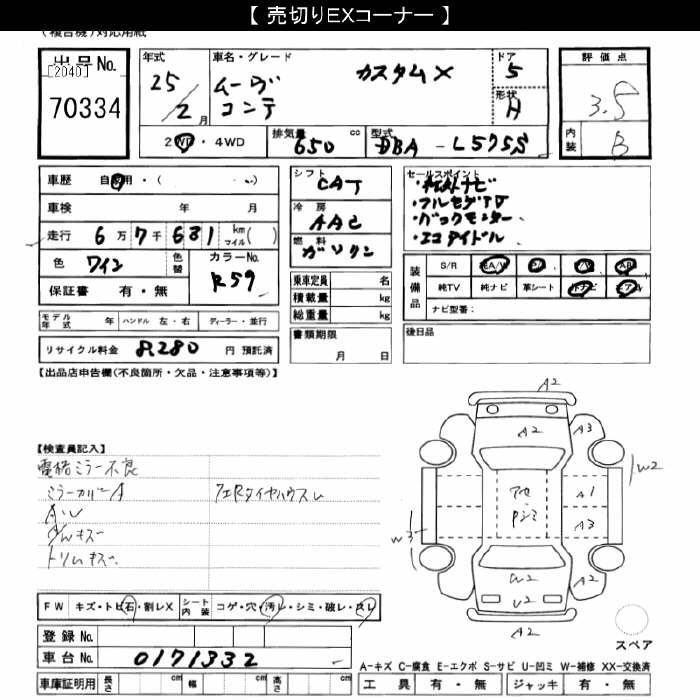 【 売切りEXコーナー 】
(複合機)対応用紙
出品No.
[2040]
70334
年式 25 / 2 月
車名・グレード ムーヴ コンテ カスタムX
ドア 5
形状 H
評価点 3.5
内装 B
2WD・4WD
排気量 650 cc
型式 DBA - L575S
車歴 自家用・( )
車検 年 月
走行 6万7千681 km マイル( )
色 ワイン 色替 カラーNo. R59
保証書 有・無
シフト CAT
冷房 AAC
燃料 ガソリン
乗車定員 名
積載量 kg
総重量 kg
書類期限 月 日
セールスポイント
・社外ナビ
・フルセグTV
・バックモニター
・エコアイドル
装備品 S/R A/W P/S P/W AB
純TV 純ナビ 革シート 外ナビ エアB
ナビ型番:
後日品
モデル年式 年 ハンドル 左・右 ディーラー・並行
リサイクル料金 8,280 円 預託済
【出品店申告欄(不良箇所・欠品・注意事項等)】
【検査員記入】
電格ミラー不良
ミラーカバーA
フェRタイヤハウス
トリムキズ
A2
A2 A3
W2
A1
W3 A3
W2 A2
U2
A2
スペア
FW キズ・トビ石・割レX シート内装 コゲ・穴・汚レ・シミ・破レ・スレ
登録No.
車台No. 0171332
A-キズ C-腐食 E-エクボ S-サビ U-凹ミ W-補修 XX-交換済
車庫証明用 長さ cm 幅 cm 高さ cm 工具 有・無 ジャッキ 有・無